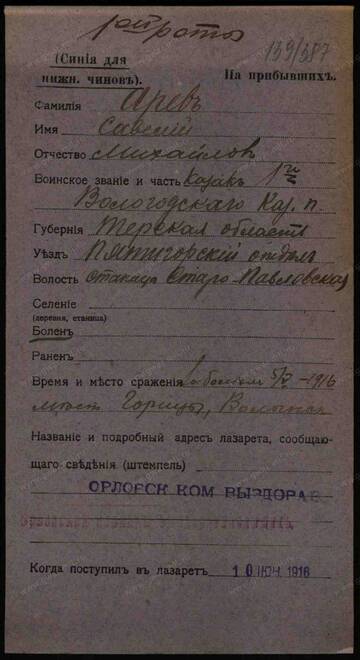 139/387
(Синія для
нижн. чиновъ).
На прибывшихъ.
Фамилія Аревъ
Имя Савелій
Отчество Михайлов
Воинское званіе и часть Козакъ 1го
Вологодскаго Каз. п.
Губернія Терская область
Уѣздъ Пятигорскій отдѣлъ
Волость Старо-Павловская
Селеніе
(деревня, станица)
Боленъ
Раненъ
Время и мѣсто сраженія 1916
мѣст.
Названіе и подробный адресъ лазарета, сообщаю-
щаго свѣдѣнія (штемпель)
ОРЛОВСК КОМ ВЫЗДОРАВ
Когда поступилъ въ лазаретъ 10 ІЮН. 1916